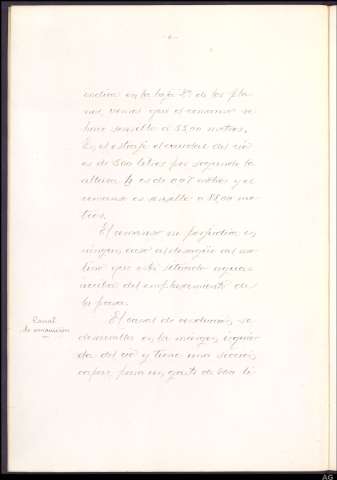 indica en la hoja 2ª de los pla-
nos, vemos que el remanso se
hace sensible a 33,00 metros.
En el estiaje el caudal del río
es de 300 litros por segundo la
altura H es de 0,07 metros y el
remanso es sensible a 88,00 me-
tros.
El remanso no perjudica en
ningún caso al desagüe del mo-
lino que está situado aguas
arriba del emplazamiento de
la presa.
Canal
de conducción
El canal de conducción se
desarrolla en la margen izquier-
da del río y tiene una sección
capaz para un gasto de 300 li-
AG